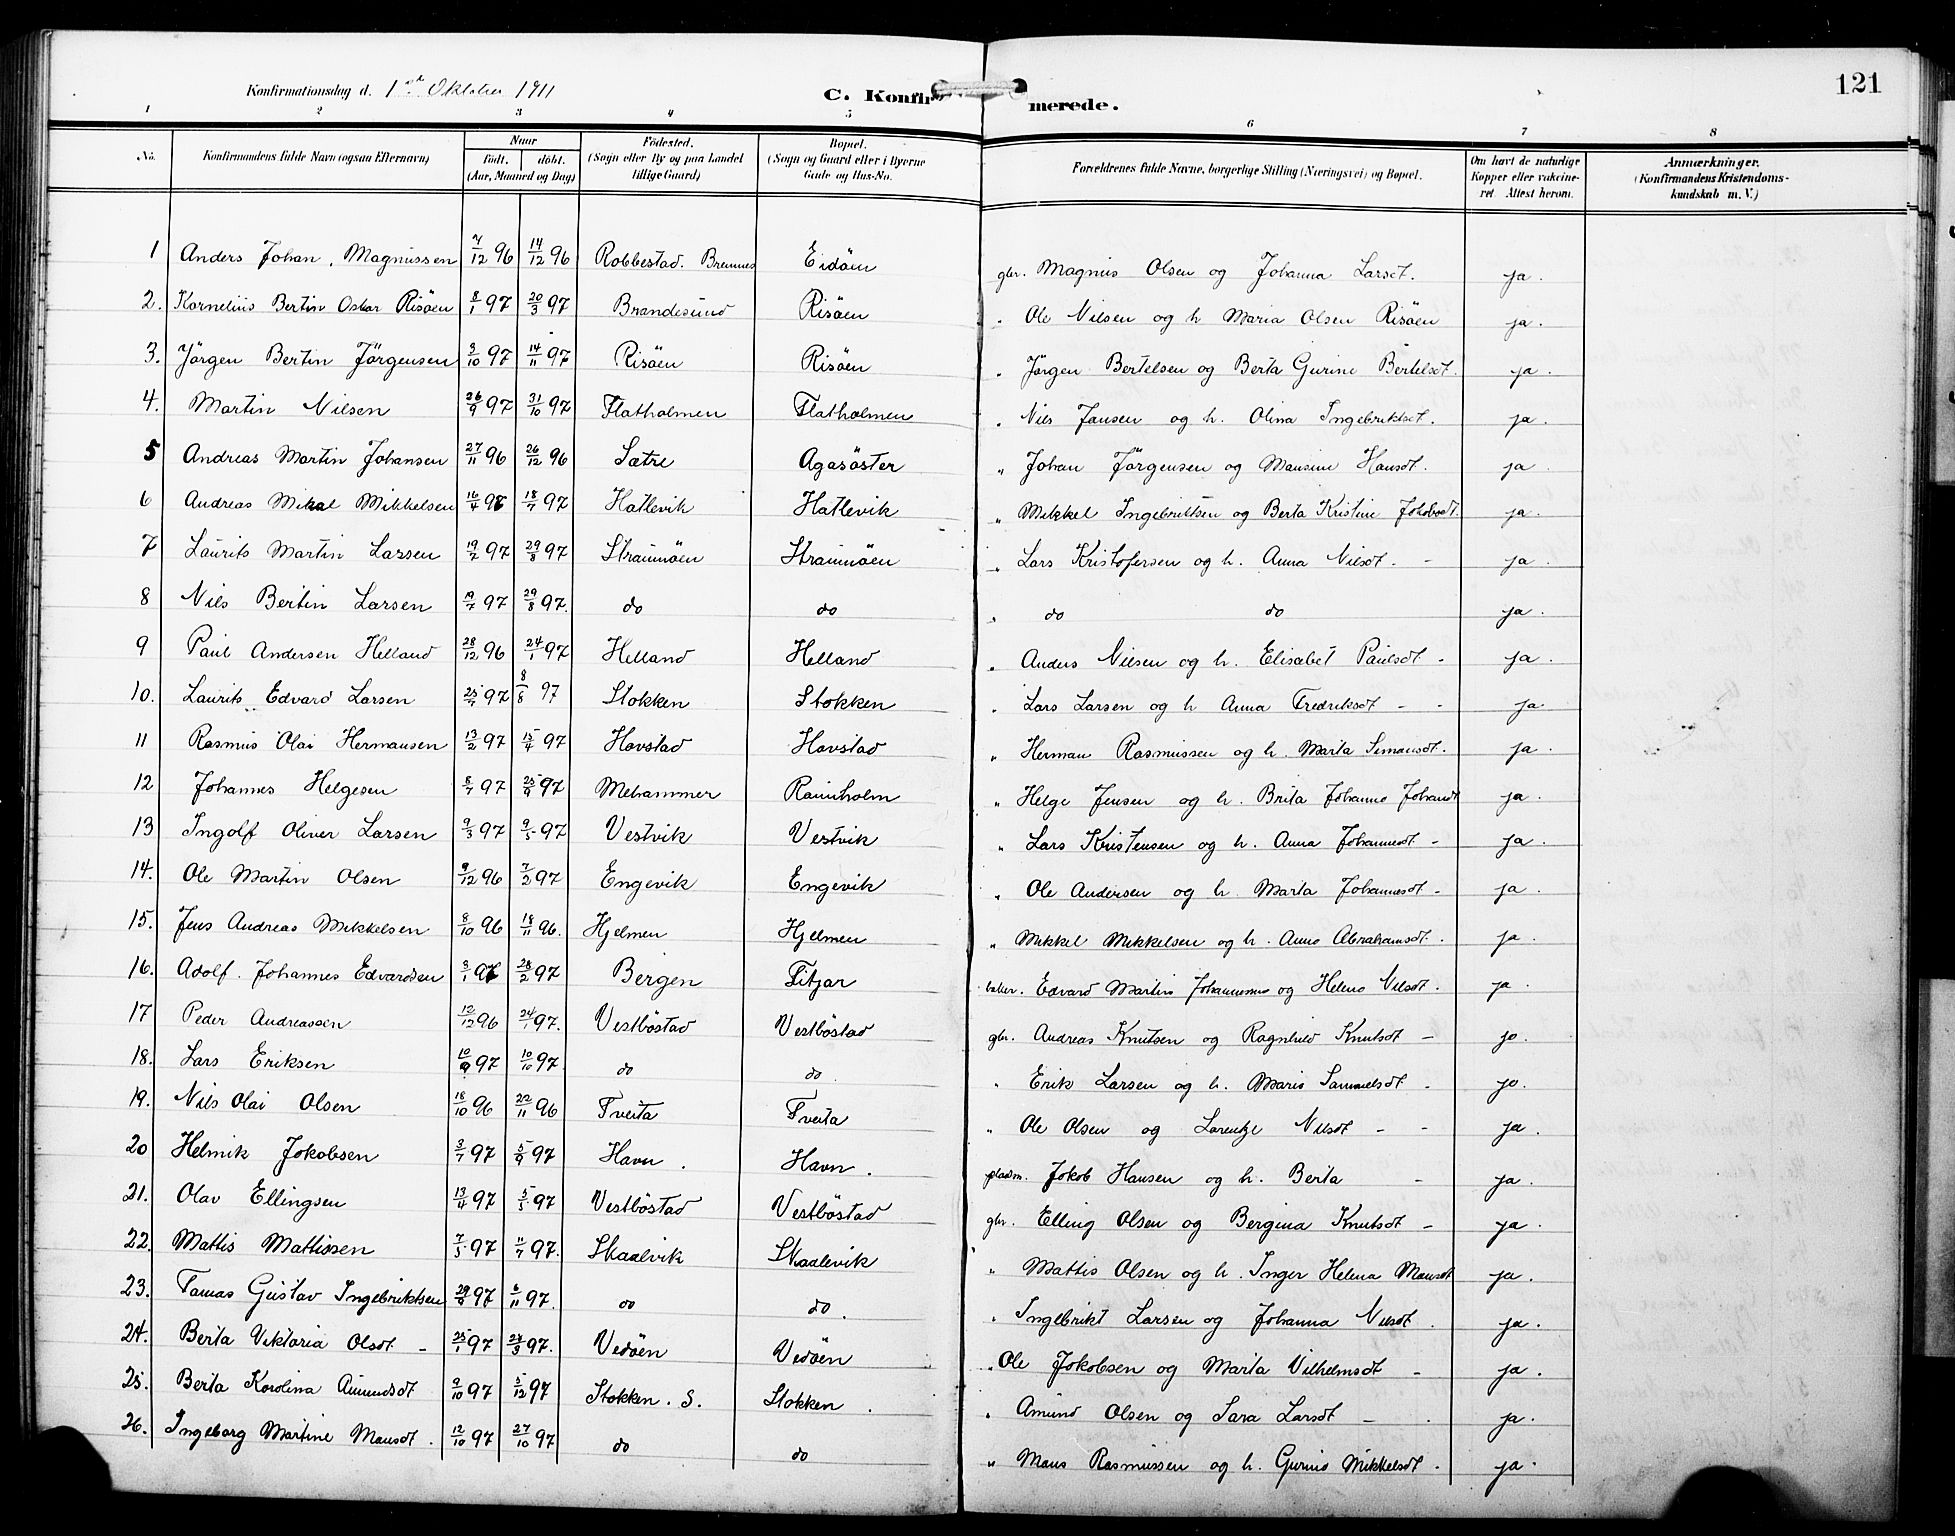 Konfirmationsdag d. 1ste Oktober 1911 C. Konfirmerede. 121
1 2 3 4 5 6 7 8
No. Konfirmandens fulde Navn (ogsaa Efternavn) Naar født. døbt. (Aar, Maaned og Dag) Fødested. (Sogn eller By og paa Landet tillige Gaard) Bopæl. (Sogn og Gaard eller i Byerne Gade og Hus-No. Forældrenes fulde Navne, borgerlige Stilling (Næringsvei) og Bopæl. Om havt de naturlige Kopper eller vakcineret. Attest herom. Anmærkninger. (Konfirmandens Kristendomskundskab m. V.)
1 Anders Johan Magnussen 7/12 96 14/12 96 Robbestad. Bremnes Eidöen gbr. Magnus Olsen og Johanna Larsdt. ja.
2. Kornelius Bertin Oskar Risöen 8/1 97 20/3 97 Brandesund Risöen " Ole Nilsen og h Maria Olsen Risöen ja.
3. Jörgen Bertin Jörgensen 3/10 97 14/11 97 Risöen Risöen " Jörgen Bertelsen og Berta Gurine Bertelsdt. ja.
4. Martin Nilsen 26/9 97 31/10 97 Flatholmen Flatholmen " Nils Jansen og h. Olina Ingebriktsdt. ja.
5 Andreas Martin Johansen 27/11 96 26/12 96 Sætre Agasöster " Johan Jörgensen og Mansine Hansdt. ja
6 Andreas Mikal Mikkelsen 16/4 97 18/7 97 Hatlevik Hatlevik " Mikkel Ingebriktsen og Berta Kristine Jakobsdt. ja.
7 Laurits Martin Larsen 19/7 97 29/8 97 Straumöen Straumöen " Lars Kristofersen og h. Anna Nilsdt. - ja.
8 Nils Bertin Larsen 19/7 97 29/8 97. do do " do do ja.
9 Paul Andersen Helland 28/12 96 24/1 97 Helland Helland " Anders Nilsen og h. Elisabet Paulsdt - ja.
10. Laurits Edvard Larsen 25/7 97 8/8 97 Stokken Stokken " Lars Larsen og h Anna Fredriksdt - - ja.
11 Rasmus Olai Hermansen 13/2 97 15/4 97 Havstad Havstad " Herman Rasmussen og h. Marta Simonsdt. ja.
12 Johannes Helgesen 8/7 97 25/9 97 Mehammer Raunholm " Helge Jensen og h. Brita Johanna Johansdt ja.
13 Ingolf Oliver Larsen 9/3 97 9/5 97 Vestvik Vestvik " Lars Kristensen og h. Anna Johannesdt - ja.
14. Ole Martin Olsen 9/12 96 7/2 97 Engevik Engevik " Ole Andersen og h. Marta Johannesdt - ja.
15. Jens Andreas Mikkelsen 8/10 96 18/11 96. Hjelmen Hjelmen " Mikkel Mikkelsen og h. Anna Abrahamsdt. ja.
16. Adolf Johannes Edvardsen 3/1 97 28/2 97 Bergen Fitjar baker. Edvard Martin Johannessen og Helene Nilsdt. ja.
17 Peder Andreassen 12/12 96 24/1 97. Vestböstad Vestböstad gbr. Andreas Knutsen og Ragnhild Knutsdt - ja.
18. Lars Eriksen 10/9 97 10/10 97. do do. " Erik Larsen og h. Maria Samuelsdt - ja.
19. Nils Olai Olsen 18/10 96 22/11 96 Tveita Tveita " Ole Olsen og Lorentze Nilsdt - - ja.
20 Helmik Jakobsen 3/7 97 5/9 97 Havn. Havn. pladsm. Jakob Hansen og h. Berta - ja.
21. Olav Ellingsen 13/4 97 5/5 97 Vestböstad Vestböstad gbr. Elling Olsen og Bergina Knutsdt - ja.
22. Mattis Mattissen 7/5 97 11/7 97. Skaalvik Skaalevik " Mattis Olsen og h. Inger Helena Mansdt ja.
23. Tomas Gustav Ingebriktsen 29/9 97 6/11 97. do do. " Ingebrikt Larsen og Johanna Nilsdt. ja.
24. Berta Viktoria Olsdt - 25/1 97 28/3 97. Vedöen Vedöen " Ole Jakobsen og Marta Vilhelmsdt - ja.
25. Berta Karolina Amundsdt 9/10 97 5/12 97 Stokken. S. Stokken. " Amund Olsen og Sara Larsdt - ja.
26. Ingeborg Martine Mansdt. 12/10 97 27/10 97 do do " Mans Rasmussen og h. Gurina Mikkelsdt. ja.